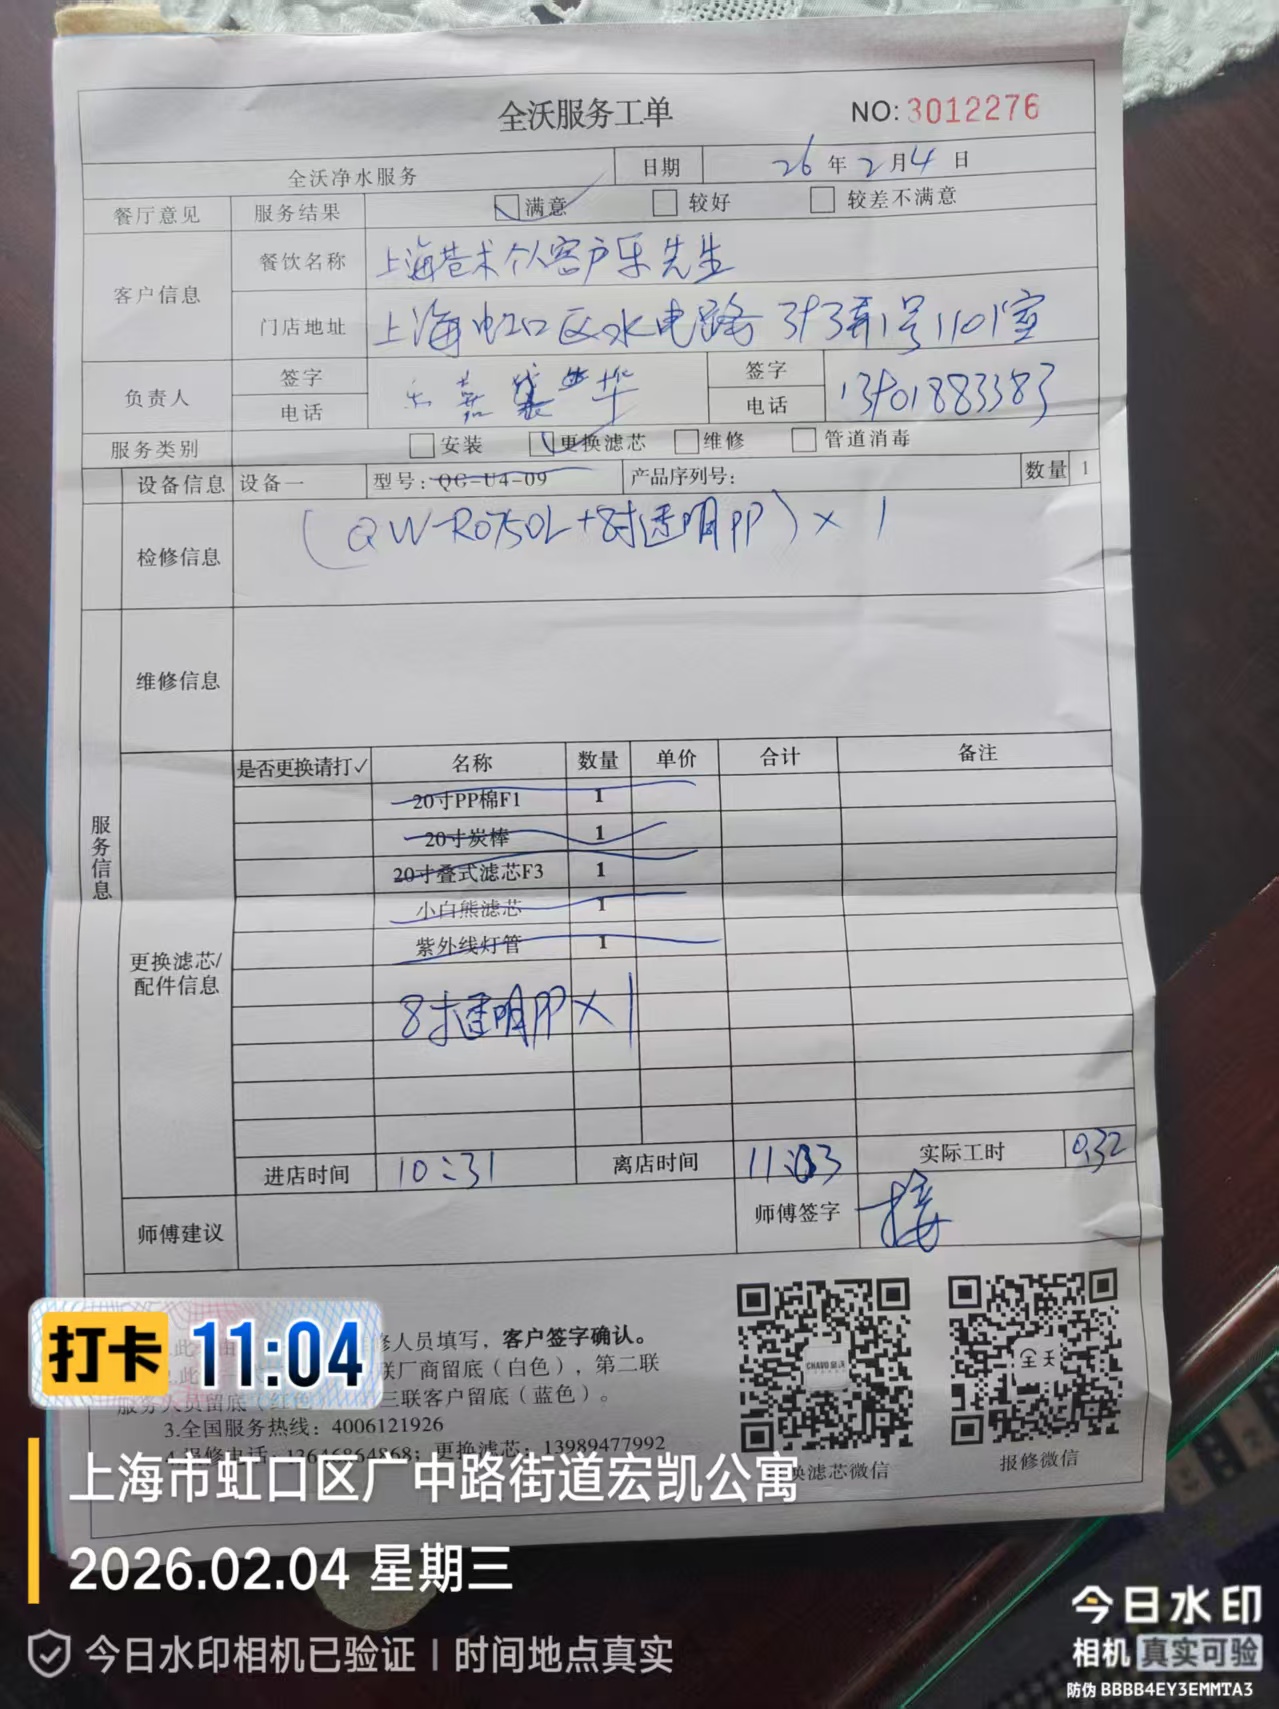 全沃服务工单 NO:3012276
全沃净水服务 日期 26年2月4日
餐厅意见 服务结果 满意 较好 较差不满意
客户信息 餐饮名称 上海巷术个人客户乐先生
门店地址 上海虹口区水电路393弄1号1101室
负责人 签字 签字
电话 电话 13901883383
服务类别 安装 更换滤芯 维修 管道消毒
设备信息 设备一 型号:QG-U4-09 产品序列号: 数量 1
检修信息 (QW-RO750L+8寸透明PP)×1
维修信息
服务信息
是否更换请打✓ 名称 数量 单价 合计 备注
20寸PP棉F1 1
20寸炭棒 1
20寸叠式滤芯F3 1
小白熊滤芯 1
紫外线灯管 1
更换滤芯/
配件信息
8寸透明PP×1
进店时间 10:31 离店时间 11:03 实际工时 0.32
师傅建议 师傅签字
修人员填写，客户签字确认。
联厂商留底（白色），第二联
服务人员留底（红色 三联客户留底（蓝色）。
3.全国服务热线：4006121926
4.报修电话：13646864868；更换滤芯：13989477992
CHAVO
全天
换滤芯微信 报修微信
打卡 11:04
上海市虹口区广中路街道宏凯公寓
2026.02.04 星期三
今日水印相机已验证 | 时间地点真实
今日水印
相机 真实可验
防伪 BBBB4EY3EMMTA3